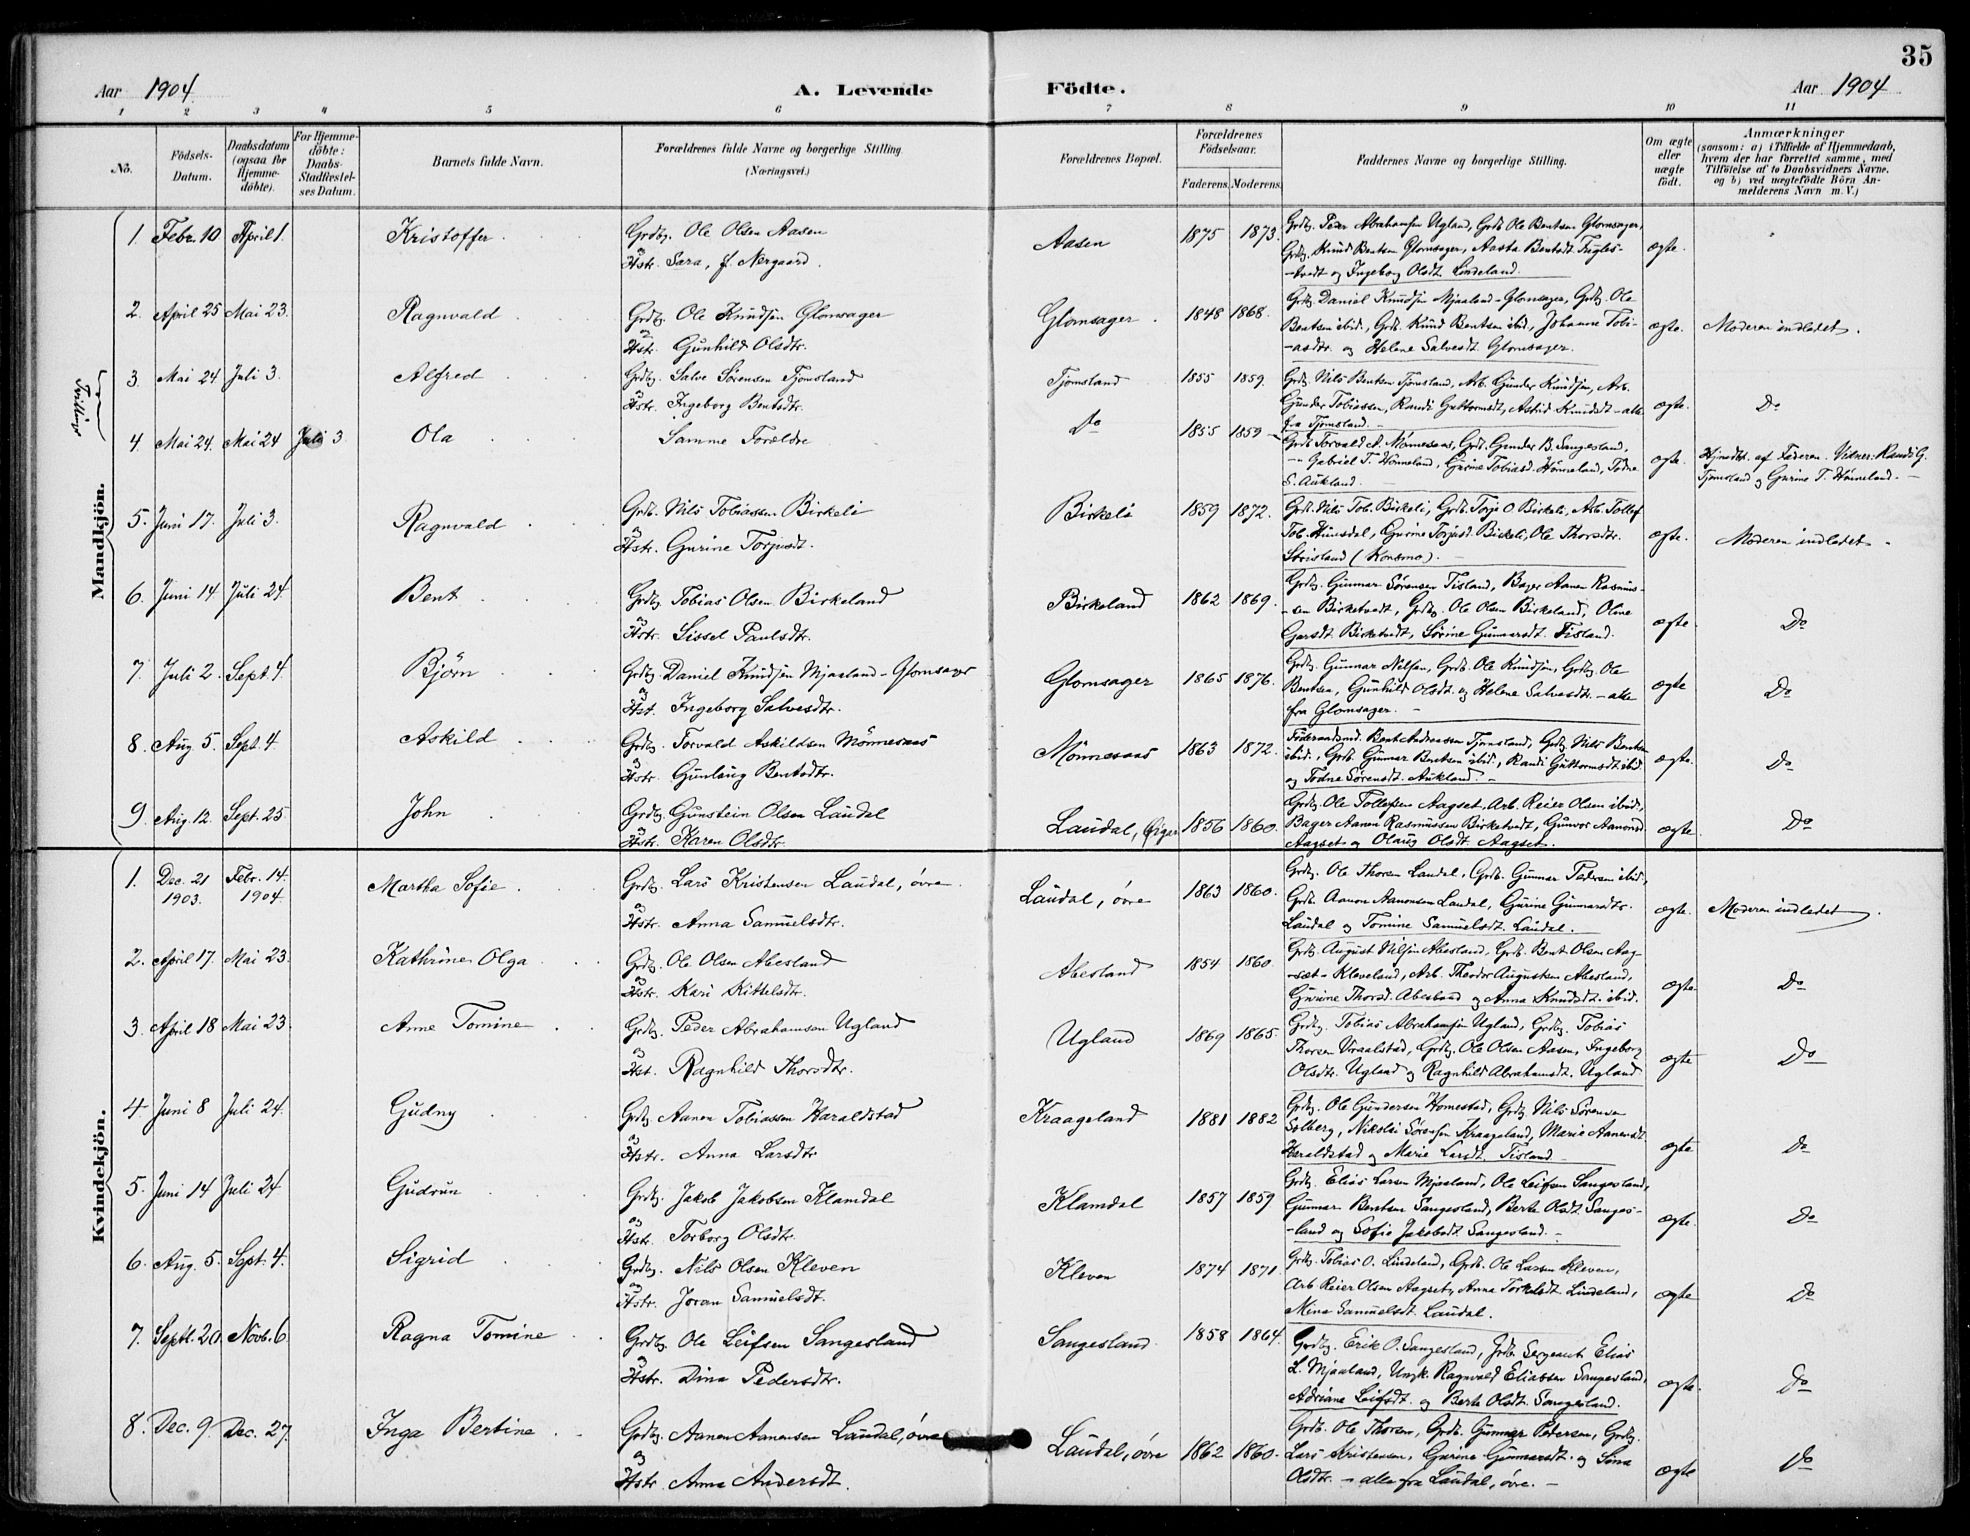 35
Aar 1904. A. Levende Födte. Aar 1904
1 2 3 4 5 6 7 8 9 10 11
No. Födsels-Datum. Daabsdatum (ogsaa for Hjemme-döbte). For Hjemme-döbte: Daabs-Stadfæstel-ses Datum. Barnets fulde Navn. Forældrenes fulde Navne og borgerlige Stilling. (Næringsvei.) Forældrenes Bopæl. Forældrenes Födselsaar. Faderens. Moderens. Faddernes Navne og borgerlige Stilling. Om ægte eller uægte födt. Anmærkninger (saasom: a) i Tilfælde af Hjemmedaab, hvem der har forrettet samme, med Tilföielse af to Daabsvidners Navne, og b) ved uægtefödte Börn An-melderens Navn m. V.)
Mandkjön.
1. Febr. 10 April 1. Kristoffer Grdbr. Ole Olsen Aasen Aasen 1875 1873. Grdbr. Peder Abrahamsen Ugland, Grdb Ole Bentsen Glomsager,
Hstr. Sara, f. Nergaard. Grdbr. Knud Bentsen Glomsager, Aasta Bentsdt. Fugles- ægte.
-tvedt og Ingeborg Olsdt. Lindeland.
2. April 25 Mai 23. Ragnvald Grdbr. Ole Knudsen Glomsager Glomsager. 1848 1868. Grdbr. Daniel Knudsen Mjaaland-Glomsager, Grdbr. Ole
og Hstr. Gunhild Olsdtr. Bentsen ibid., Grdb. Knud Bentsen ibid, Johanne Tobi- ægte. Moderen indledet.
-asdtr. og Helene Salvesdt. Glomsager.
Tvillinger
3. Mai 24 Juli 3. Alfred Grdbr. Salve Sörensen Tjomsland Tjomsland 1855 1859. Grdbr. Nils Bentsen Tjomsland, Arb. Gunder Knudsen, Arb.
og Hstr. Ingeborg Bentsdtr. Gunder Tobiassen, Randi Guttormsdt, Astrid Knudsdt - alle ægte. Do
fra Tjomsland. -
4. Mai 24. Mai 24 Juli 3 Ola Samme Forældre Do 1855 1859 Grdb Torvald A. Mönnesaas, Grdb. Gunder B. Sangesland,
- Gabriel T. Hönneland, Gurine Tobiasd. Hönneland, Todne ægte. Hjmedöbt. af Faderen. Vidner: Randi G.
S. Aukland. Tjomsland og Gurine T. Hönneland. -
5. Juni 17. Juli 3. Ragnvald Grdb. Nils Tobiassen Birkeli Birkeli 1859 1872. Grdb. Nils Tob. Birkeli, Grdb. Torje O Birkeli, Arb. Tollef
og Hstr. Gurine Torjusdt. Tob. Hunsdal, Gurine Torjusd. Birkeli, Ole Thorsdtr. ægte. Moderen indledet -
(Konsmo). -
6. Juni 14 Juli 24. Bent Grdbr. Tobias Olsen Birkeland Birkeland 1862 1869. Grdbr. Gunnar Sörensen Tisland, Bager Aanen Rasmus-
og Hstr. Sissel Paulsdtr. -sen Birketvedt, Grdbr. Ole Olsen Birkeland, Oline ægte Do
Garsdt. Birketvedt, Sörine Gunnarsdt. Tisland.
7. Juli 2. Sept. 4. Björn Grdbr. Daniel Knudsen Mjaaland-Glomsager Glomsager 1865 1876. Grdbr. Gunnar Nilsen, Grdb. Ole Knudsen, Grdbr. Ole
og Hst. Ingeborg Salvesdtr. Bentsen, Gunhild Olsdt. og Helene Salvesdtr. - alle ægte Do
fra Glomsager. -
8. Aug. 5. Sept. 4. Askild Grdbr. Torvald Askildsen Mönnesaas Mönnesaas 1863 1872. Föderaadsmd. Bent Andreassen Tjomsland, Grdbr. Nils Bentsen
og Hstr. Gunlaug Bentsdtr. ibid., Grdb. Gunnar Bentsen ibid., Randi Guttormsdt. ibid. ægte. Do
og Todne Sörensdt. Aukland. -
9. Aug. 12. Sept. 25 John Grdbr. Gunstein Olsen Laudal Laudal, 1856 1860. Grdbr. Ole Tollefsen Aagset, Arb. Reier Olsen ibid,
og Hstr. Karen Olsdtr. Bager Aanen Rasmussen Birketvedt, Gunvor Aanensd. ægte Do
Aagset og Olaug Olsdt. Aagset.
Kvindekjön.
1. Dec. 21 1903. Febr. 14. 1904 Martha Sofie Grdbr. Lars Kristensen Laudal, övre. Laudal, övre 1863 1860. Grdbr. Ole Thorsen Laudal, Grdb. Gunnar Pedersen ibid,
og Hstr. Anna Samuelsdtr. Grdb. Aanon Aanonsen Laudal, Gurine Gunnarsdtr. ægte. Moderen indledet.
Laudal og Tomine Samuelsdt. Laudal.
2. April 17. Mai 23. Kathrine Olga Grdbr. Ole Olsen Abesland Abesland 1854 1860 Grdb. August Nilsen Abesland, Grdb. Bent Olsen Aag-
og Hstr. Kari Kittelsdtr. -sæt-Kleveland, Arb. Theodor Augustsen Abesland, ægte. Do
Gurine Thorsd. Abesland og Anna Knudsdt. ibid.
3. April 18 Mai 23. Anne Tomine Grdbr. Peder Abrahamsen Ugland Ugland 1869 1865. Grdbr. Tobias Abrahamsen Ugland, Grdbr. Tobias
og Hst. Ragnhild Thorsdtr. Thorsen Vraalstad, Grdbr. Ole Olsen Aasen, Ingeborg ægte Do
Olsdtr. Ugland og Ragnhild Abrahamsdt. Ugland
4. Juni 8 Juli 24. Gudny Grdbr. Aanen Tobiassen Haraldstad Kraageland 1881 1882 Grdbr. Ole Gundersen Homestad, Grdbr. Nils Sörensen
og Hstr. Anna Larsdtr. Solberg, Nikolai Sörensen Kraageland, Marie Aanensdt. ægte Do
Haraldstad og Marie Larsdt. Tisland
5. Juni 14 Juli 24 Gudrun Grdbr. Jakob Jakobsen Klamdal Klamdal 1857 1859 Grdbr. Elias Larsen Mjaaland, Ole Leifsen Sangesland,
og Hstr. Torborg Olsdtr. Gunnar Bentsen Sangesland, Berte Olsdt. Sanges- ægte. Do
-land og Sofie Jakobsdt. Sangesland. -
6. Aug. 5. Sept. 4. Sigrid Grdbr. Nils Olsen Kleven Kleven 1874 1871. Grdbr. Tobias O. Lindeland, Grdb. Ole Larsen Kleven,
og Hstr. Joran Samuelsdt. Arb Reier Olsen Aagset, Anna Torkelsdt. Lindeland, ægte Do
Mina Samuelsdt. Laudal.
7. Septb. 20. Novb. 6 Ragna Tomine Grdbr. Ole Leifsen Sangesland Sangesland 1858 1864. Grdbr. Erik O. Sangesland, Grdb. Sergeant Elias
og Hstr. Dina Pedersdtr. L. Mjaaland, Ungk. Ragnvald Eliassen Sangesland, ægte. Do
Adriane Leifsdt. og Berte Olsdt. Sangesland.
8. Dec. 9. Dec. 27. Inga Bertine Grdbr. Aanen Aanensen Laudal, övre Laudal, övre 1862 1860. Grdb. Ole Thorsen, Grdb. Gunnar Petersen, Grdbr.
og Hstr. Anna Andersdt. Lars Kristensen, Gurine Gunnarsdt. og Sina ægte Do
Olsdtr. - alle fra Laudal, övre. -